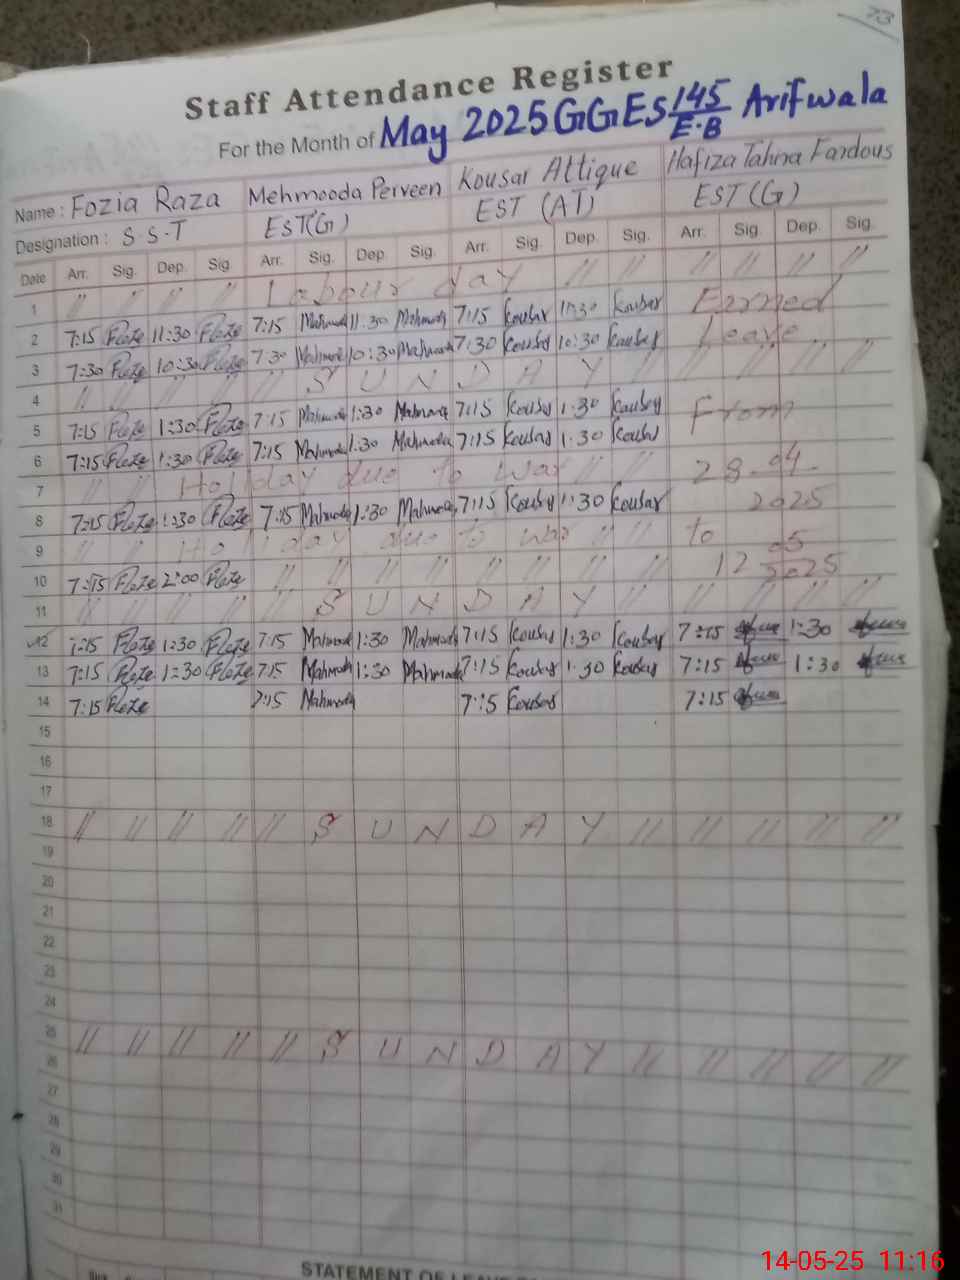 73
Staff Attendance Register
For the Month of May 2025 GGES 145/E.B Arifwala
Name : Fozia Raza Mehmooda Perveen Kousar Attique Hafiza Tahira Fardous
Designation : S.S.T EST(G) EST (AT) EST (G)
Date Arr. Sig. Dep. Sig. Arr. Sig. Dep. Sig. Arr. Sig. Dep. Sig. Arr. Sig. Dep. Sig.
1 // // // // Labour day // // // // // //
2 7:15 11:30 7:15 Mahmooda 11:30 Mahmooda 7:15 Kousar 11:30 Kousar Earned
3 7:30 10:30 7:30 Mahmooda 10:30 Mahmooda 7:30 Kousar 10:30 Kousar Leave
4 // // // // // S U N D A Y // // // // //
5 7:15 1:30 7:15 Mahmooda 1:30 Mahmooda 7:15 Kousar 1:30 Kousar From
6 7:15 1:30 7:15 Mahmooda 1:30 Mahmooda 7:15 Kousar 1:30 Kousar
7 // // Holiday due to war // // 28-04-
8 7:15 1:30 7:15 Mahmooda 1:30 Mahmooda 7:15 Kousar 1:30 Kousar 2025
9 // // Holiday due to war // // to 05
10 7:15 2:00 // // // // // // // // 12 2025
11 // // // // // S U N D A Y // // // // //
12 7:15 1:30 7:15 Mahmooda 1:30 Mahmooda 7:15 Kousar 1:30 Kousar 7:15 1:30
13 7:15 1:30 7:15 Mahmooda 1:30 Mahmooda 7:15 Kousar 1:30 Kousar 7:15 1:30
14 7:15 7:15 Mahmooda 7:15 Kousar 7:15
15
16
17
18 // // // // // S U N D A Y // // // // //
19
20
21
22
23
24
25 // // // // // S U N D A Y // // // // //
26
27
28
29
30
31
STATEMENT OF LEAVE
14-05-25 11:16